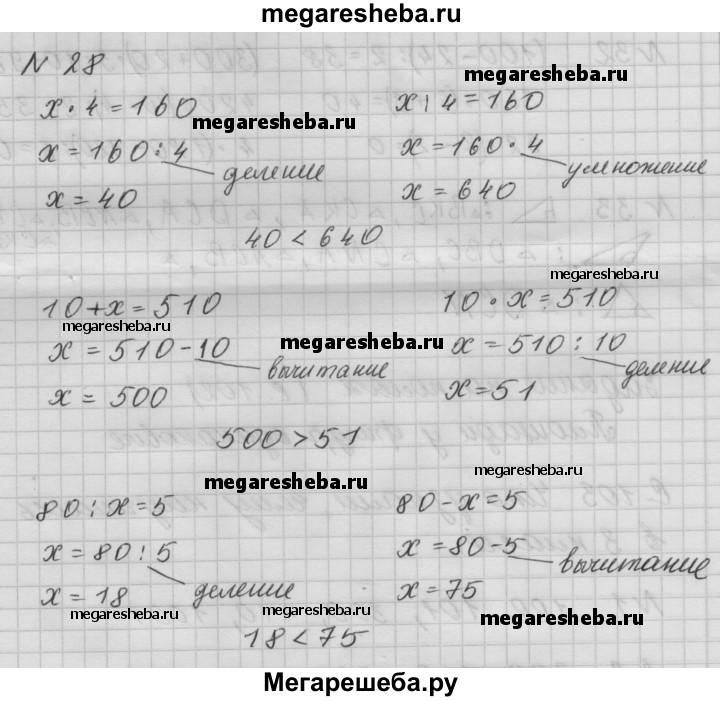 megaresheba.ru
N 28
x · 4 = 160
x : 4 = 160
megaresheba.ru
megaresheba.ru
x = 160 : 4
деление
x = 160 · 4
умножение
x = 40
x = 640
40 < 640
10 + x = 510
10 · x = 510
megaresheba.ru
megaresheba.ru
megaresheba.ru
x = 510 - 10
вычитание
x = 510 : 10
деление
x = 500
x = 51
500 > 51
megaresheba.ru
megaresheba.ru
80 : x = 5
80 - x = 5
x = 80 : 5
деление
x = 80 - 5
вычитание
x = 18
x = 75
megaresheba.ru
megaresheba.ru
megaresheba.ru
18 < 75
Мегарешеба.ру